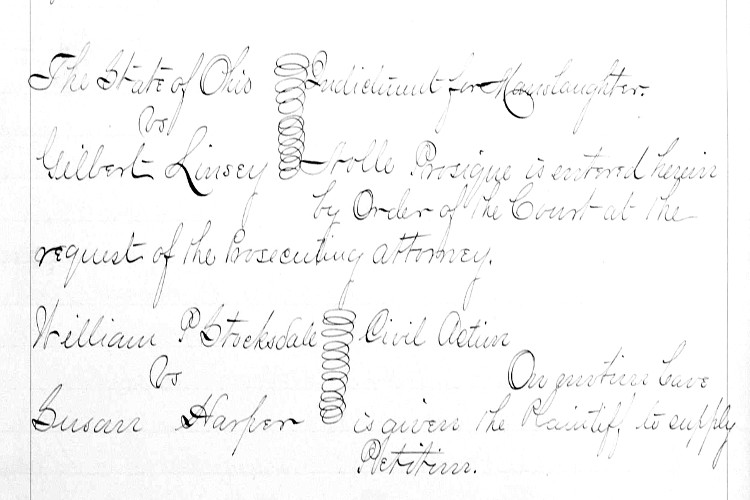 The State of Ohio Indictment for Manslaughter.
vs
Gilbert Linsey Nolle Prosique is entered herein
by Order of the Court at the
request of the Prosecuting Attorney.
William P Stocksdale Civil Action
vs On motion Leave
Susan Harper is given the Plaintiff to supply
Petition.